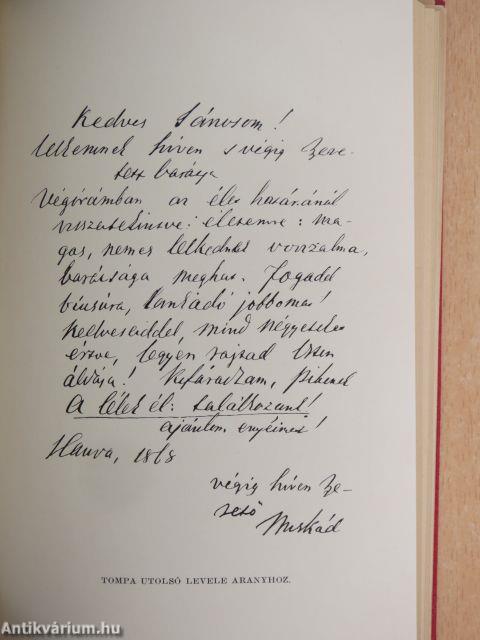 Kedves Jánosom!
lelkemnek híven s végig szere-
tett barátja
Végórámban az élet határánál
visszatekintve életemre: ma-
gas, nemes lelkednek vonzalma,
barátsága meghat. Fogadd
búcsúra, lankadó jobbomat!
kedveseiddel, mind négyeteket
értve, legyen rajtad Isten
áldása! Kifáradtam, pihenek
A lélek él: találkozunk!
ajánlom enyéimet!
Hanva, 1868
végig híven sze-
rető
Miskád
TOMPA UTOLSÓ LEVELE ARANYHOZ.
Antikvárium.hu